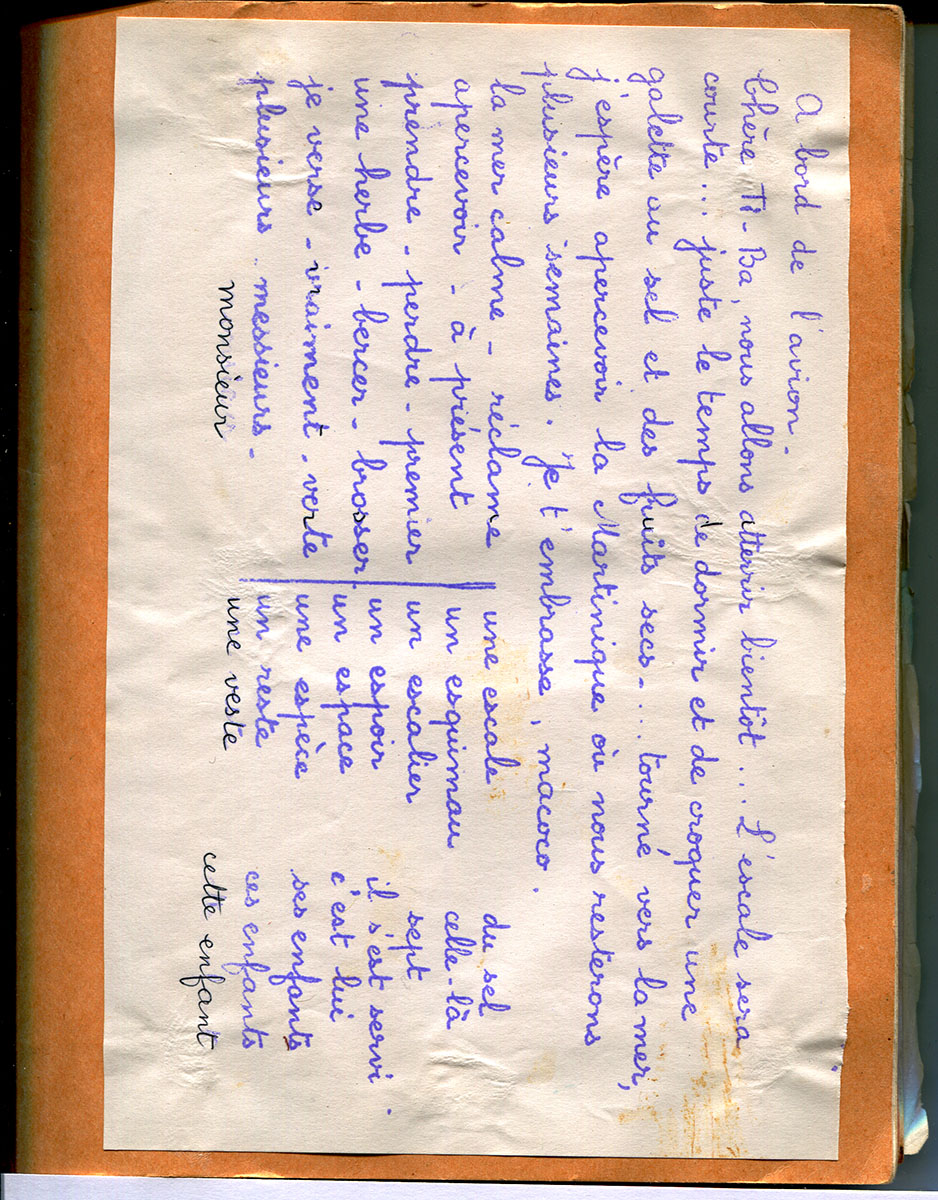 A bord de l'avion.
Chère Ti-Ba, nous allons atterrir bientôt... L'escale sera
courte... juste le temps de dormir et de croquer une
galette au sel et des fruits secs... tourné vers la mer,
j'espère apercevoir la Martinique où nous resterons
plusieurs semaines. Je t'embrasse, macoco.
la mer calme - réclame une escale du sel
apercevoir - à présent un esquimau celle-là
prendre - perdre - premier un escalier sept
une herbe - bercer - brosser un espoir il s'est servi.
je verse - vraiment - verte un espace c'est lui
plusieurs messieurs - une espèce ses enfants
monsieur un reste ces enfants
une veste cette enfant